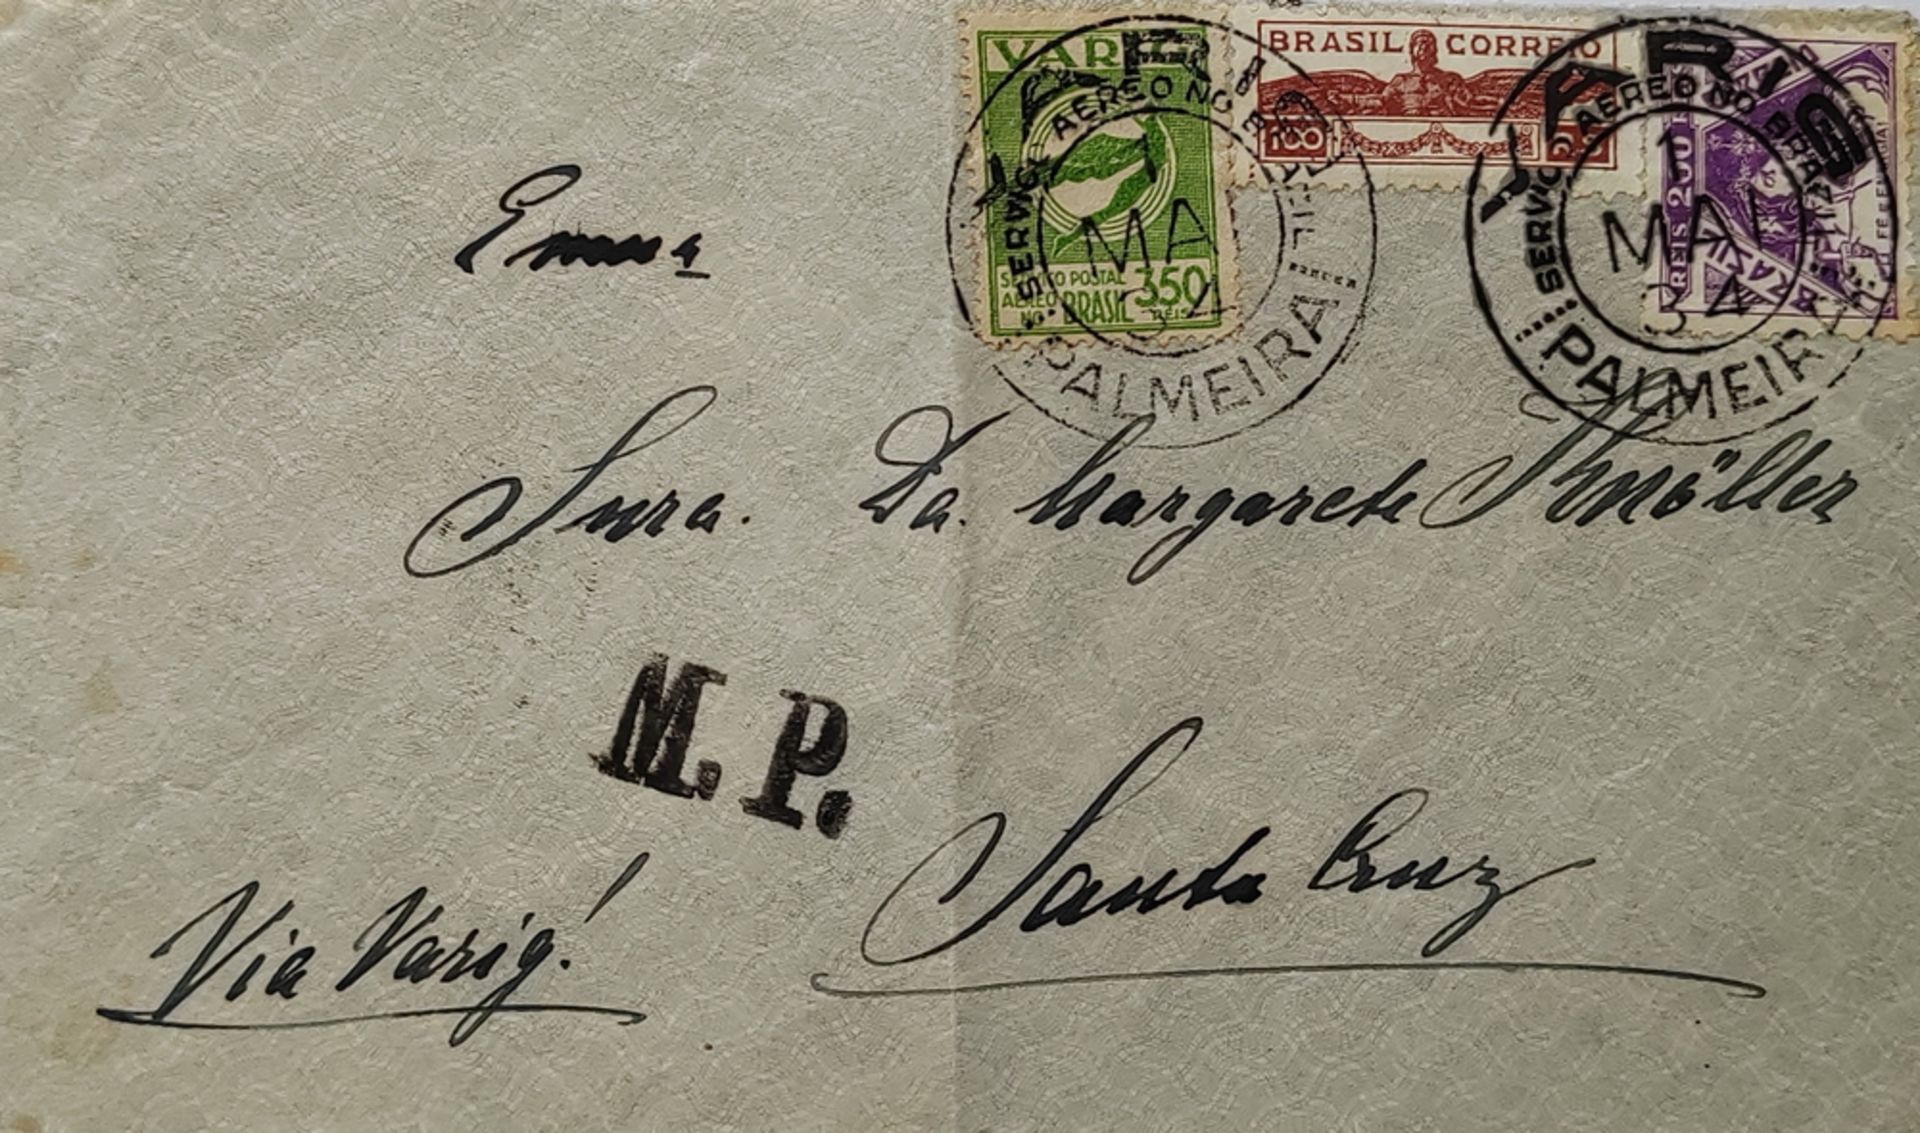 VARIG
SERVIÇO POSTAL
AEREO
NO BRASIL 350
REIS
BRASIL CORREIO
100
REIS 200
BRASIL
VARIG
SERVIÇO AEREO NO BRASIL
1
MAI
34
PALMEIRA
VARIG
SERVIÇO AEREO NO BRASIL
1
MAI
34
PALMEIRA
Exma
Snra. Da. Margarete Knöller
M. P.
Santa Cruz
Via Varig!